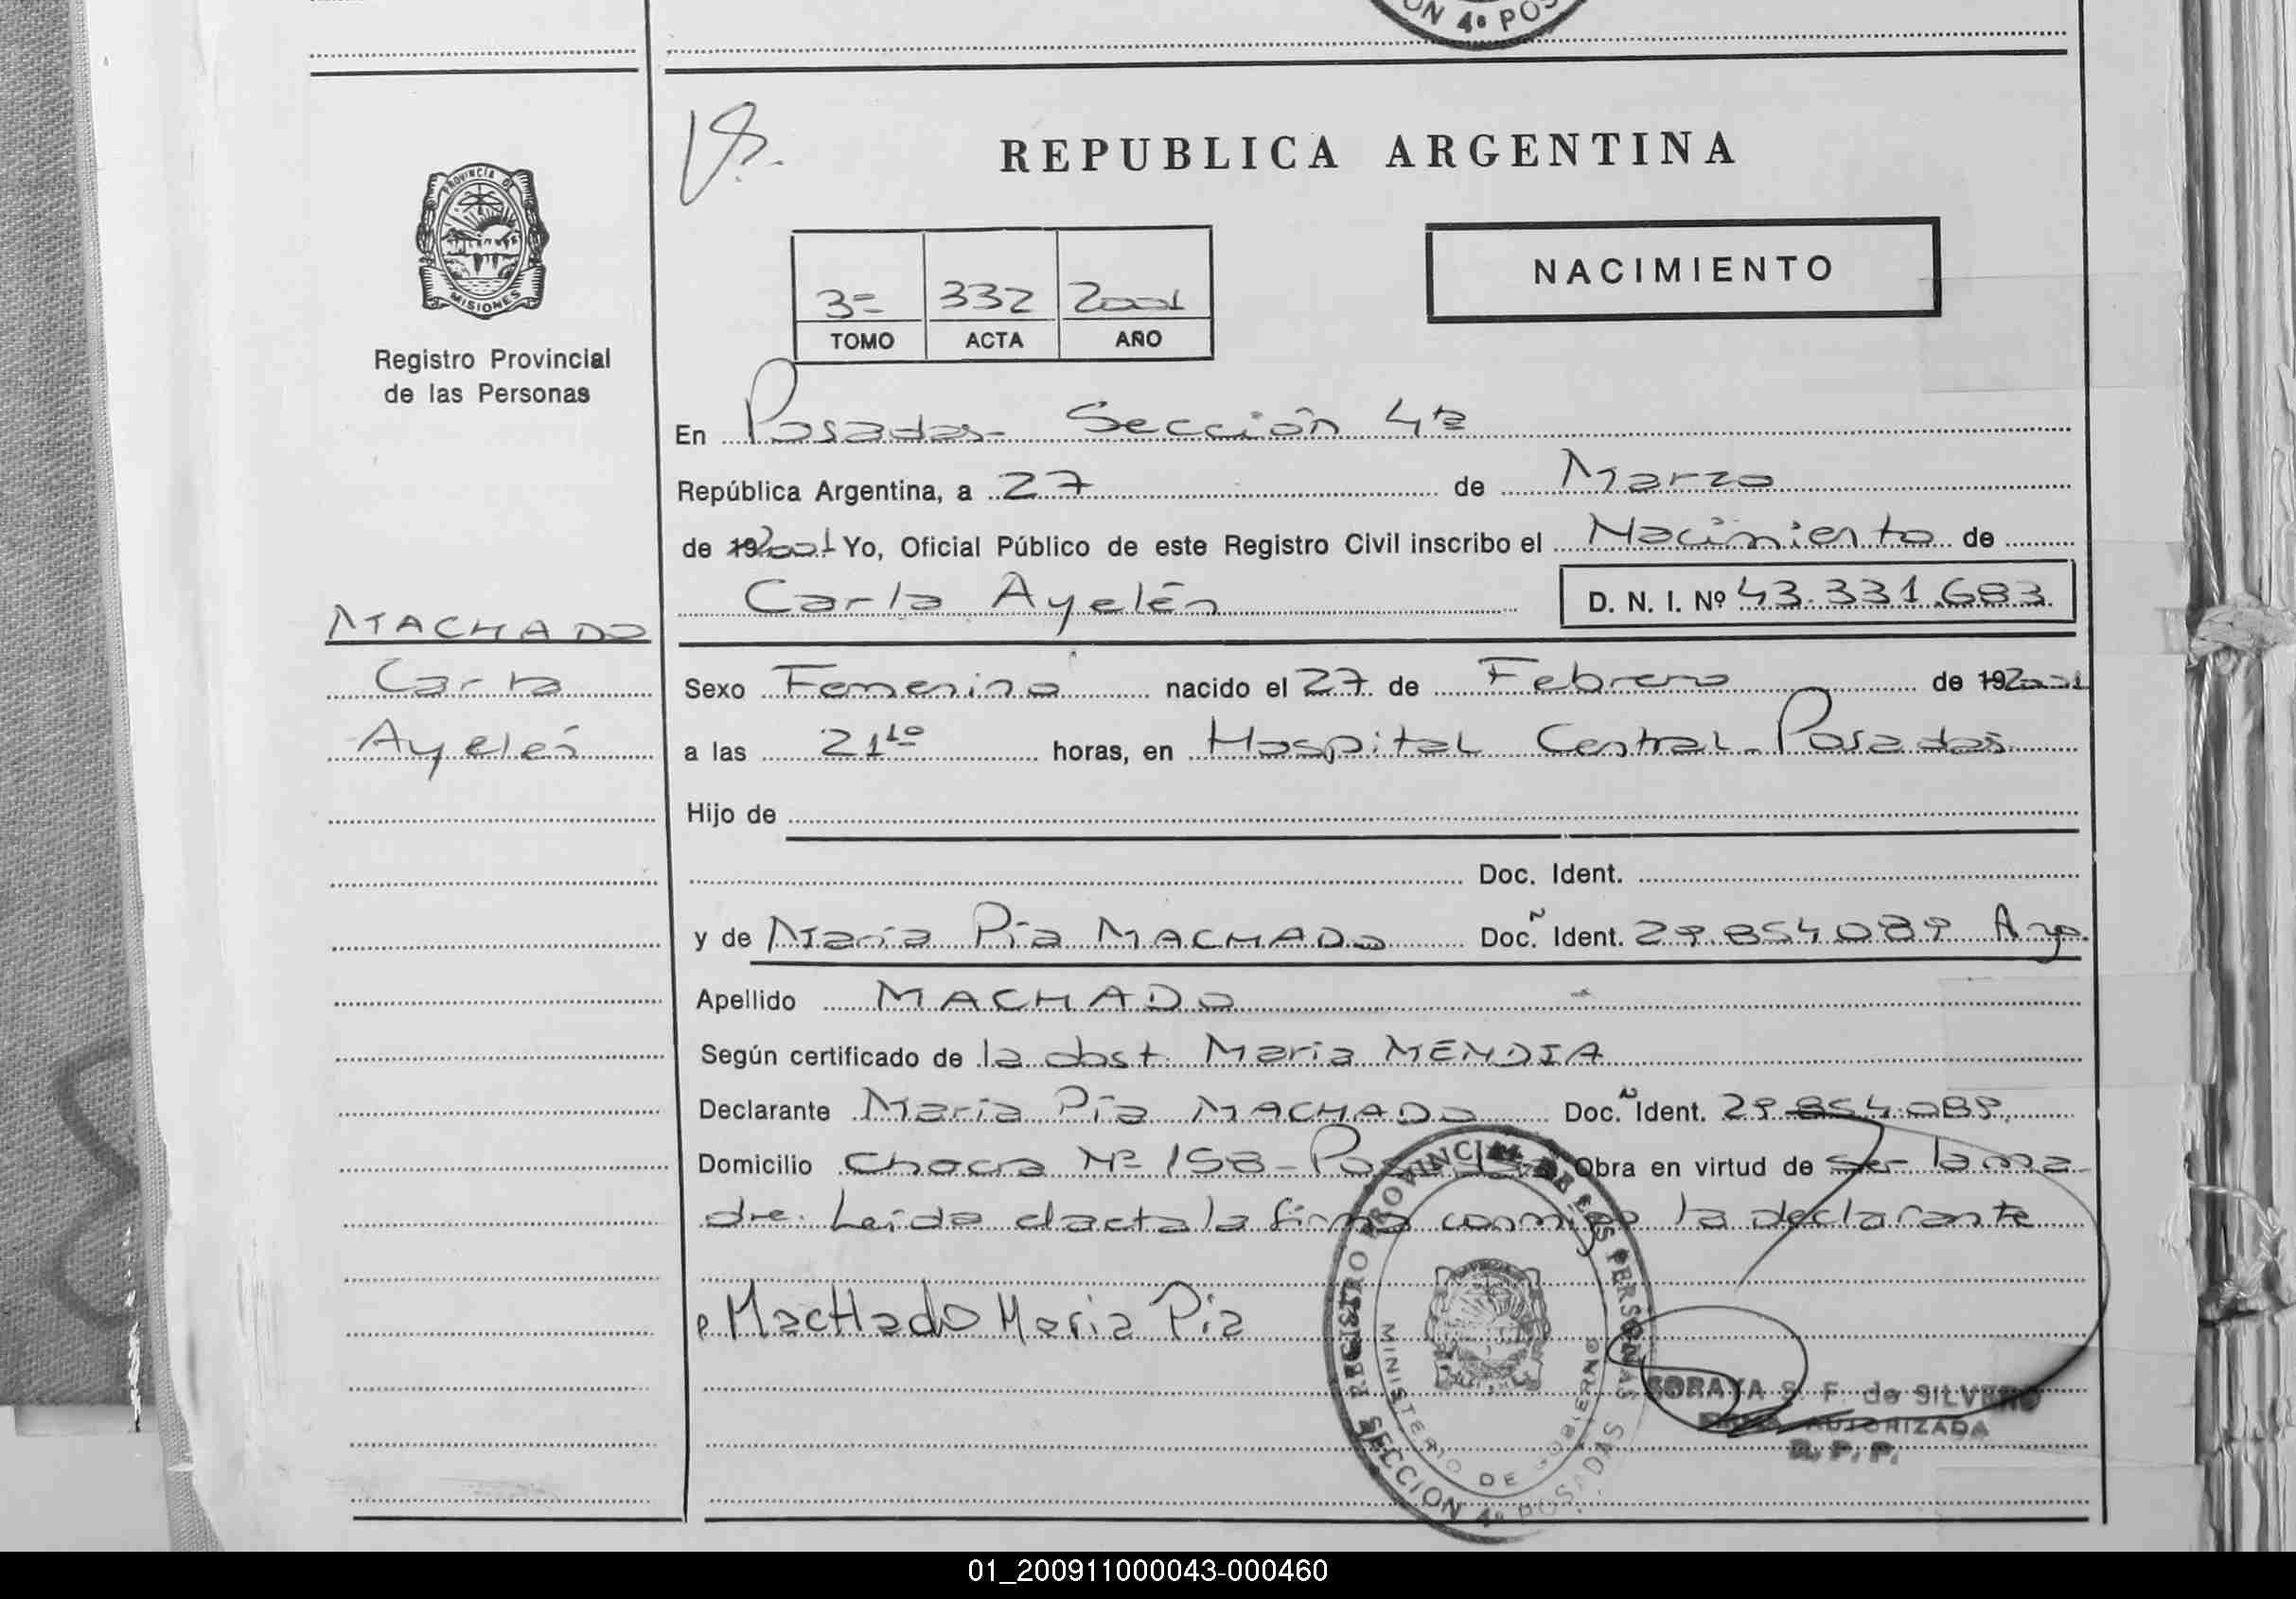 ON 4º POS
REPUBLICA ARGENTINA
PROVINCIA DE
MISIONES
Registro Provincial
de las Personas
3= 332 2001
TOMO ACTA AÑO
NACIMIENTO
En Posadas- Sección 4ta
República Argentina, a 27 de Marzo
de 192001 Yo, Oficial Público de este Registro Civil inscribo el Nacimiento de
Carla Ayelén D. N. I. Nº 43.331.683
MACHADO
Carla
Ayelén
Sexo Femenino nacido el 27 de Febrero de 192001
a las 21 10 horas, en Hospital Central- Posadas
Hijo de
Doc. Ident.
y de María Pía MACHADO Doc. Ident. 29.854.089 Arg.
Apellido MACHADO
Según certificado de la obst. María MENDIA
Declarante María Pía MACHADO Doc. Ident. 29.854.089
Domicilio Chacra Nº 158- Posadas Obra en virtud de ser la ma
dre. Leída el acta la firma conmigo la declarante
MacHado Maria Pia
REGISTRO PROVINCIAL DE LAS PERSONAS
MINISTERIO DE GOBIERNO
SECCION 4º POSADAS
SORAYA S. F. de SILVERO
FIRMA AUTORIZADA
R. P. P.
01_200911000043-000460